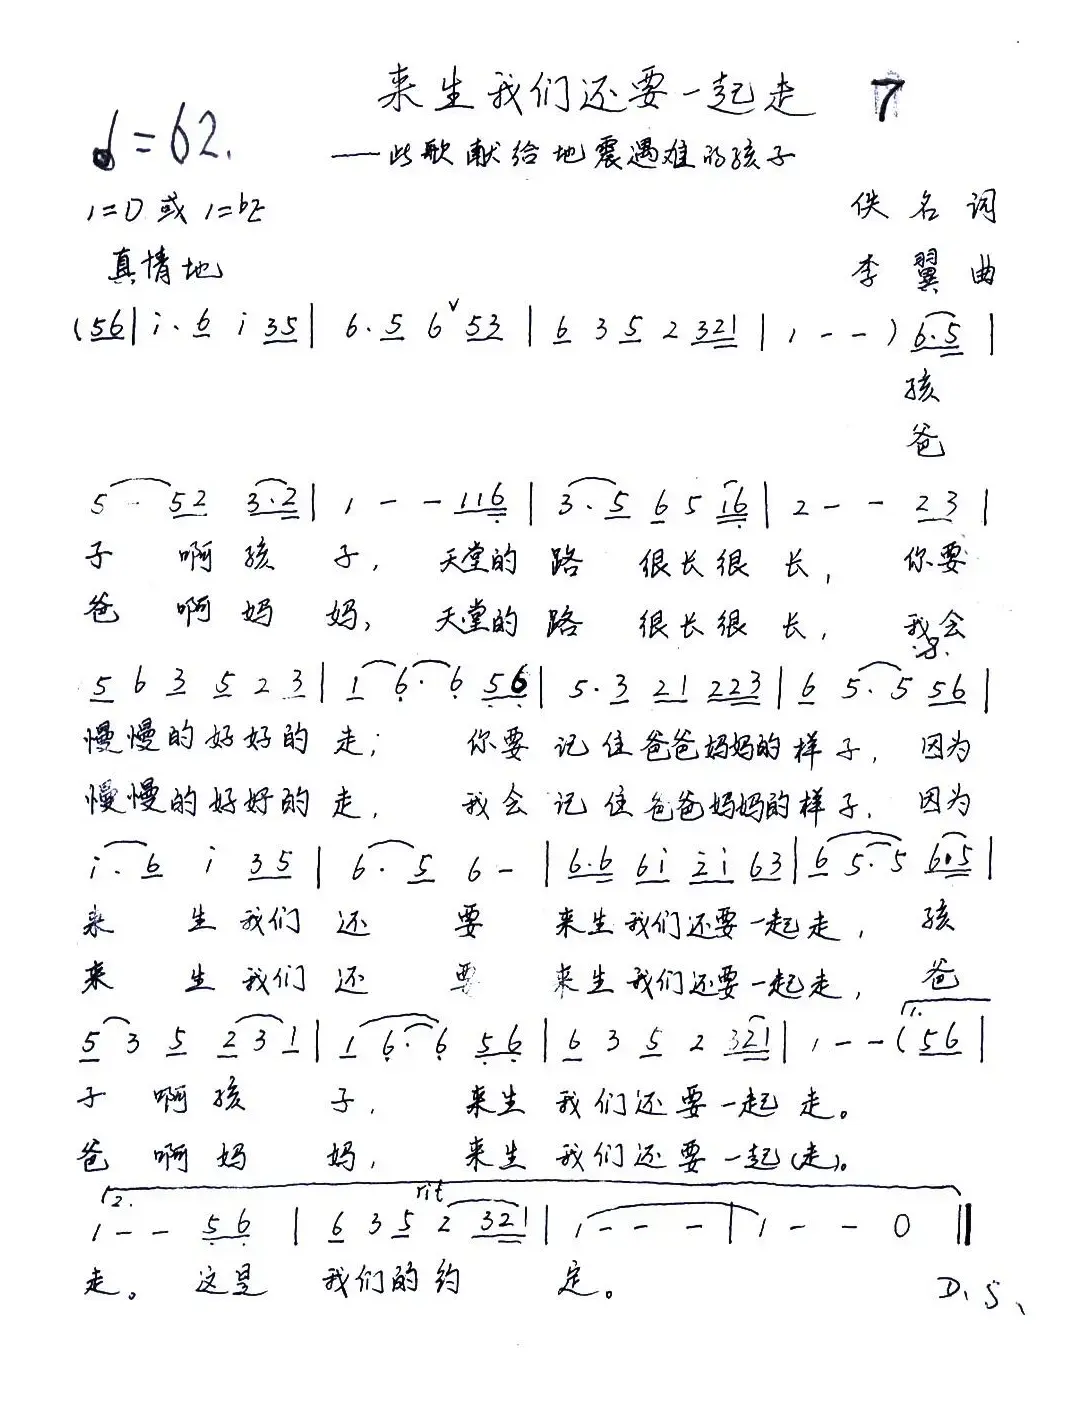 来生我们还要一起走 7
♩=62.
——此歌献给地震遇难的孩子
1=D 或 1=bE 佚名词
真情地 李翼曲
(56| i·6 i 35| 6·5 6ˇ53 | 6 3 5 2 321 | 1 - - ) 6·5 |
孩
爸
5 - 52 3·2 | 1 - - 116 | 3·5 6 5 16 | 2 - - 23 |
子 啊孩 子, 天堂的 路 很长很 长, 你要
爸 啊妈 妈, 天堂的 路 很长很 长, 我会
5 6 3 5 2 3 | 1 6·6 56 | 5·3 21 223 | 6 5·5 56 |
慢慢的好好的 走; 你要 记 住爸爸妈妈的样子, 因为
慢慢的好好的 走, 我会 记 住爸爸妈妈的样子, 因为
i·6 i 35 | 6·5 6 - | 6·6 6i 2i 63 | 6 5·5 6·5 |
来 生我们 还 要 来生我们还要一起走, 孩
来 生我们 还 要 来生我们还要一起走, 爸
1.
5 3 5 2 3 1 | 1 6·6 56 | 6 3 5 2 321 | 1 - - ( 56 |
子 啊孩 子, 来生 我们还要一起 走。
爸 啊妈 妈, 来生 我们还要一起(走)。
2. rit
1 - - 56 | 6 3 5 2 321 | 1 - - - | 1 - - 0 ‖
走。 这是 我们的约 定。
D、S、